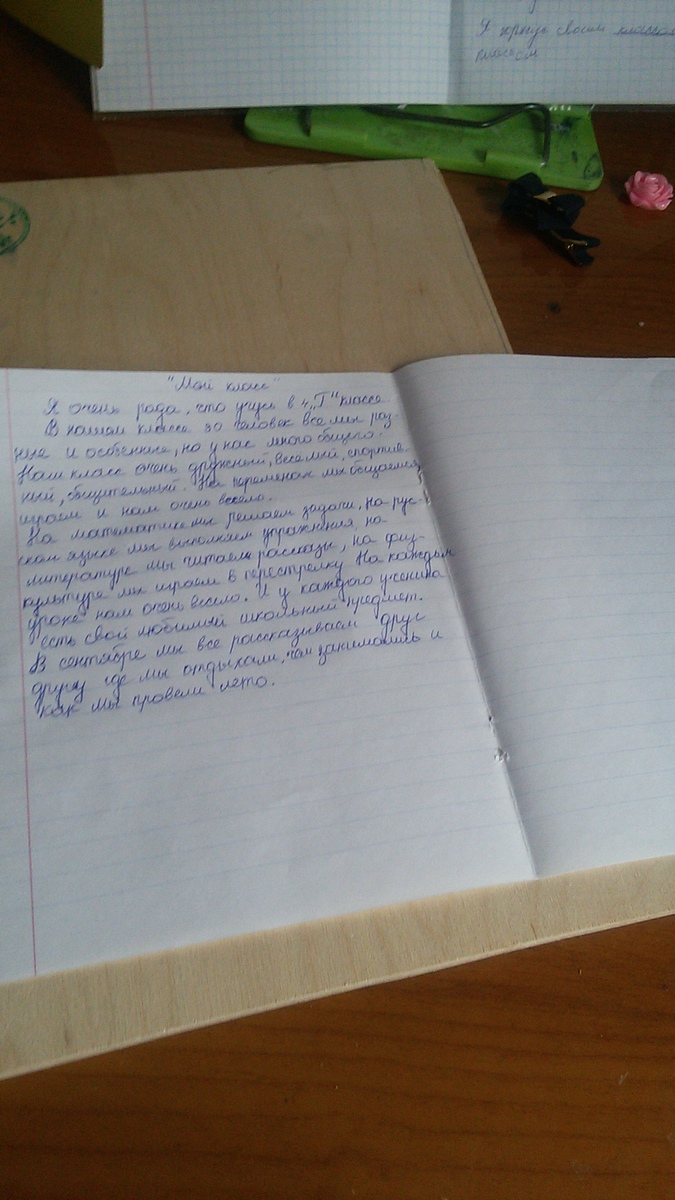 Я горжусь своим классом
классом
"Мой класс"
Я очень рада, что учусь в 4 „Г" классе.
В нашем классе 30 человек все мы раз-
ные и особенные, но у нас много общего.
Наш класс очень дружный, весёлый, спортив-
ный, общительный. На переменах мы общаемся,
играем и нам очень весело.
На математике мы решаем задачи, на рус-
ском языке мы выполняем упражнения, на
литературе мы читаем рассказы, на физ-
культуре мы играем в перестрелку. На каждом
уроке нам очень весело. И у каждого ученика
есть свой любимый школьный предмет.
В сентябре мы все рассказываем друг
другу где мы отдыхали, чем занимались и
как мы провели лето.